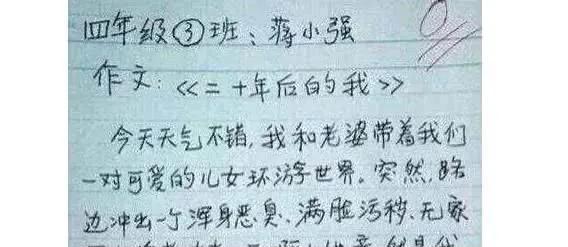 四年级③班：蒋小强
作文：<<二十年后的我>>
今天天气不错，我和老婆带着我们
一对可爱的儿女环游世界。突然，路
边冲出一个浑身恶臭、满脸污秽、无家